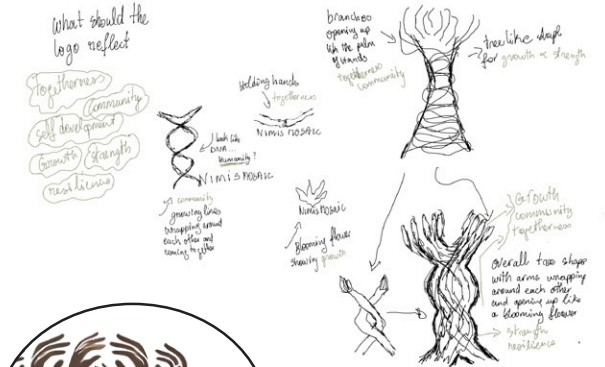 what should the
logo reflect
togetherness
community
self development
Growth
strength
resilience
I look like
DNA...
Humanity?
NIMISMOSAIC
community
growing lines
wrapping around
each other and
coming together
Holding hands
togetherness
NIMIS MOSAIC
NIMISMOSAIC
Blooming flower
showing growth
branches
opening up
like the palm
of hands
togetherness
community
tree like shape
for growth & strength
Growth
community
togetherness
overall tree shape
with arms wrapping
around each other
and opening up like
a blooming flower
strength
resilience